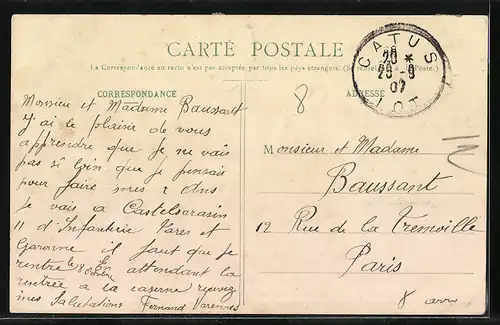 CARTE POSTALE
La Correspondance au recto n'est pas acceptée par tous les pays étrangers. (Se
CORRESPONDANCE
ADRESSE
CATUS
20 *
29 - 9
07
LOT
8
Monsieur et Madame Baussant
J'ai le plaisir de vous
apprendre que je ne vais
pas si loin que je pensais
pour faire mes 2 Ans
Je vais a Castelsarasin
11 d'Infanterie Tares et
Garonne il faut que je
rentre le 8 Octobre En attendant la
rentrée a la caserne recevez
mes Salutations Fernand Varennes
Monsieur et Madame
Baussant
12 Rue de la Tremoille
Paris
8 arr